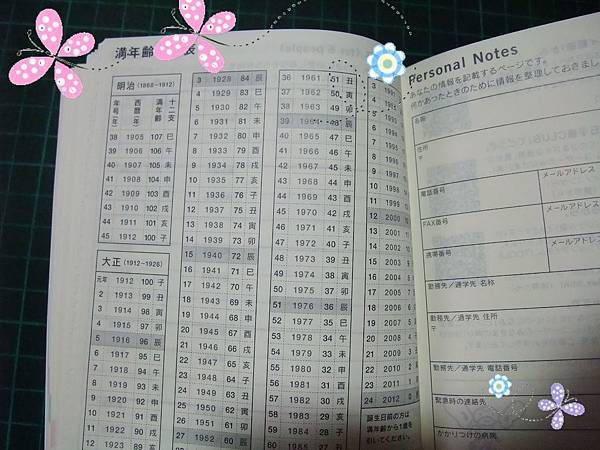 満年齢
明治 (1868~1912)
年号(年) 西暦(年) 満年齢 十二支
38 1905 107 巳
39 1906 106 午
40 1907 105 未
41 1908 104 申
42 1909 103 酉
43 1910 102 戌
44 1911 101 亥
45 1912 100 子
大正 (1912~1926)
元年 1912 100 子
2 1913 99 丑
3 1914 98 寅
4 1915 97 卯
5 1916 96 辰
6 1917 95 巳
7 1918 94 午
8 1919 93 未
9 1920 92 申
10 1921 91 酉
11 1922 90 戌
12 1923 89 亥
3 1928 84 辰
4 1929 83 巳
5 1930 82 午
6 1931 81 未
7 1932 80 申
8 1933 79 酉
9 1934 78 戌
10 1935 77 亥
11 1936 76 子
12 1937 75 丑
13 1938 74 寅
14 1939 73 卯
15 1940 72 辰
16 1941 71 巳
17 1942 70 午
18 1943 69 未
19 1944 68 申
20 1945 67 酉
21 1946 66 戌
22 1947 65 亥
23 1948 64 子
24 1949 63 丑
25 1950 62 寅
26 1951 61 卯
27 1952 60 辰
36 1961 51 丑
37 1962 50 寅
38 1963 49 卯
39 1964 48 辰
40 1965 47 巳
41 1966 46 午
42 1967 45 未
43 1968 44 申
44 1969 43 酉
45 1970 42 戌
46 1971 41 亥
47 1972 40 子
48 1973 39 丑
49 1974 38 寅
50 1975 37 卯
51 1976 36 辰
52 1977 35 巳
53 1978 34 午
54 1979 33 未
55 1980 32 申
56 1981 31 酉
57 1982 30 戌
58 1983 29 亥
59 1984 28 子
3 1991
4 1992
5 1993
6 1994
7 1995
8 1996
9 1997
10 1998
11 1999
12 2000
13 2001
14 2002
15 2003
16 2004
17 2005
18 2006
19 2007
20 2008
21 2009
22 2010
23 2011
24 2012 0
誕生日前の方は
満年齢から1歳を
引いてください。
Personal Notes
あなたの情報を記載するページです。
何かあったときのために情報を整理しておきまし
名前
住所
〒
電話番号 メールアドレス
FAX番号 メールアドレス
携帯番号 メールアドレス
勤務先／通学先 名称
勤務先／通学先 住所
〒
勤務先／通学先 電話番号
緊急時の連絡先
かかりつけの病院